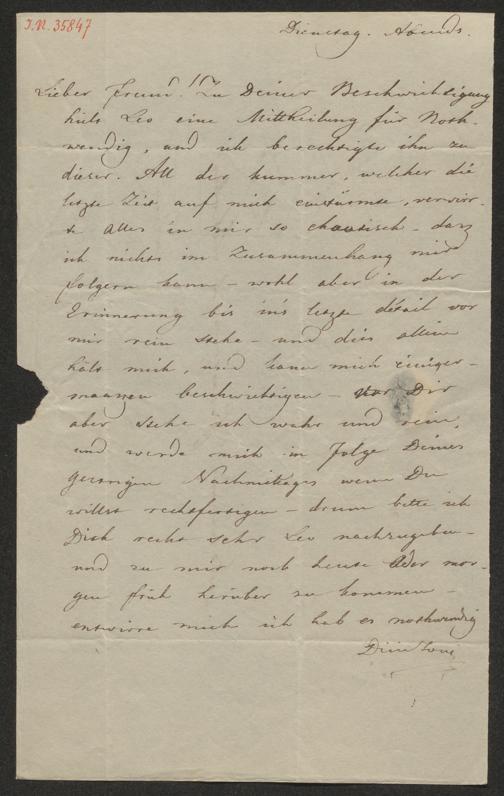 I.N. 35847
Dienstag. Abends.
Lieber Freund!! Zu Deiner Beschwichtigung
hielt Leo eine Mittheilung für Noth-
wendig, und ich berechtigte ihn zu
dieser. All der kummer, welcher die
letzte Zeit auf mich einstürmte, verwirr-
te Alles in mir so chaotisch - dasz
ich nichts im Zusammenhang mir
folgern kann - wohl aber in der
Erinnerung bis in's letzte détail vor
mir rein stehe - und dies allein
hält mich, und kann mich einiger-
maaszen beschwichtigen - vor Dir
aber stehe ich wahr und rein,
und werde mich in Folge Deines
gestrigen Nachmittages wenn Du
willst rechtfertigen - drum bitte ich
Dich recht sehr Leo nachzugeben -
und zu mir noch heute Oder mor-
gen früh herüber zu kommen -
entwirre mich ich hab es nothwendig